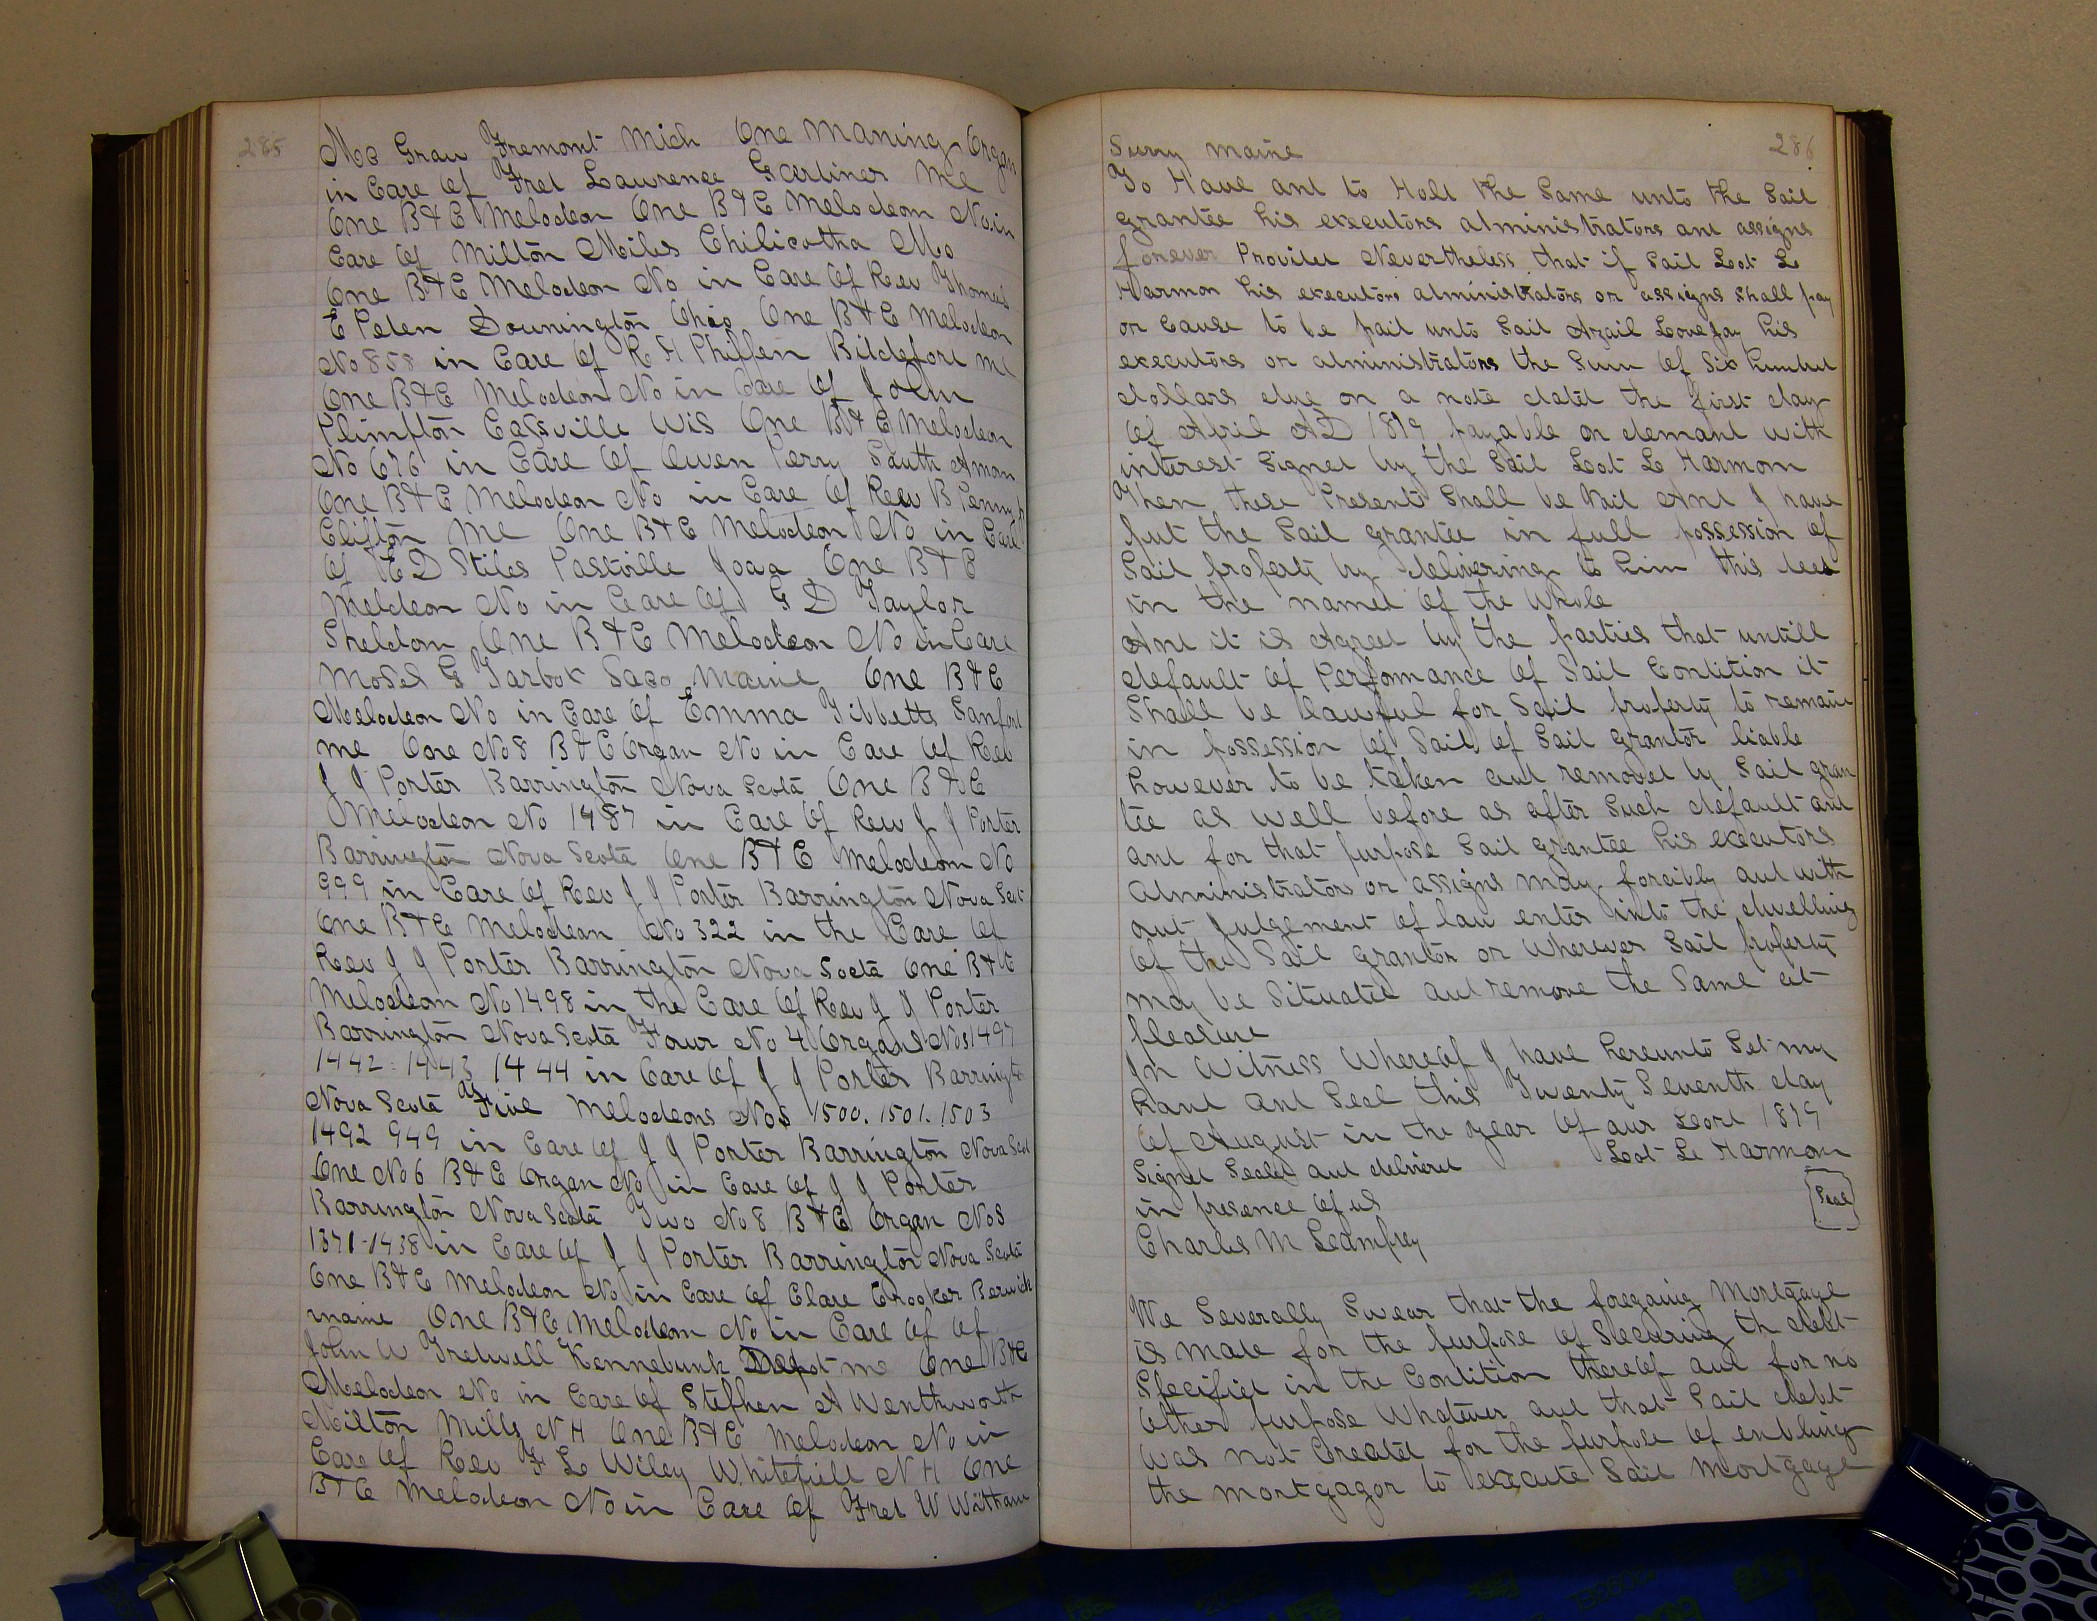 285
Mc Grau Fremont Mich One Maning Organ
in Care of Fred Lawrence Gardiner Me
One B&C Melodeon One B&C Melodeon No in
Care of Milton Miles Chilicotha Mo
One B&C Melodeon No in Care of Rev Thomas
E Peden Dounington Ohio One B&C Melodeon
No 858 in Care of R H Phiffen Biddeford Me
One B&C Melodeon No in Care of John
Plimpton Eatsville Wis One B&C Melodeon
No 676 in Care of Owen Perry South
One B&C Melodeon No in Care of Rev B Penny
Clifton Me One B&C Melodeon No in Care
of E D Stiles Pastville Ioaa One B&C
Meldeon No in Care of G D Taylor
Sheldom One B&C Melodeon No in Care
Moses G Tarbox Saco Maine One B&C
Melodeon No in Care of Emma Tibbetts Sanford
me One No 8 B&C Organ No in Care of Rev
J J Porter Barrington Nova Scota One B&C
Melodeon No 1487 in Care of Rew J J Porter
Barrington Nova Scota One B&C Melodeon No
999 in Care of Rev J J Porter Barrington Nova Scot
One B&C Melodean No 322 in the Care of
Rev J J Porter Barrington Nova Socta One B&C
Melodeon No 1498 in the Care of Rev J J Porter
Barrington Nova Scota Four No 4 Organs Nos 1497
1442 : 1443 1444 in Care of J J Porter Barrington
Nova Scota Five Melodeons Nos 1500. 1501. 1503
1492 949 in Care of J J Porter Barrington Nova Scot
One No 6 B&C Organ No in Care of J J Porter
Barrington Nova Scota Two No 8 B&C Organ Nos
1371-1438 in Care of J J Porter Barrington Nova Scota
One B&C Melodeon No in Care of Clare Crooker Berwick
maine One B&C Melodeon No in Care of of
John W Tredwell Kennebunk Depot me One B&C
Melodeon No in Care of Stephen A Wenthworth
Milton Mills N H One B&C Melodeon No in
Care of Rev F L Wiley Whitefield N H One
B&C Melodeon No in Care of Fred W Witham
286
Surry Maine
To Have and to Hold the Same unto the Said
grantee his executors administrators and assigns
forever Provided Nevertheless that if said Lot L
Harmon his executors administrators or assigns shall pay
or Cause to be paid unto Said Azail Lovejoy his
executors or administrators the Sum of Six hundred
dollars due on a note dated the first day
of April AD 1879 payable on demand with
interest Signed by the Said Lot L Harmon
Then these Presents Shall be Void And I have
put the Said grantee in full possession of
Said property by delivering to him this deed
in the named of the Whole
And it is Agreed by the parties that untill
default of Performance of Said Condition it
Shall be lawful for Said property to remain
in possession of Said of Said grantor liable
however to be taken and removed by Said gran
tee as well before as after Such default and
and for that purpose Said grantee his executors
Administrators or assigns may forcibly and with
out Judgement of law enter into the dwelling
of the Said grantor or Wherever Said property
may be Situated and remove the Same at
pleasure
In Witness Whereof I have hereunto Set my
hand and Seal this Twenty Seventh day
of August in the year of aur Lord 1879
Signed Sealed and deliverd Lot L Harmon
in presence of us Seal
Charles M Leamfrey
We Severally Swear that the foregoing Mortgage
is made for the purpose of Securing th debt
Specified in the Condition thereof and for no
Other purpose Whatever and that Said debt
Was not Created for the purpose of enbling
the mortgagor to execute Said Mortgage